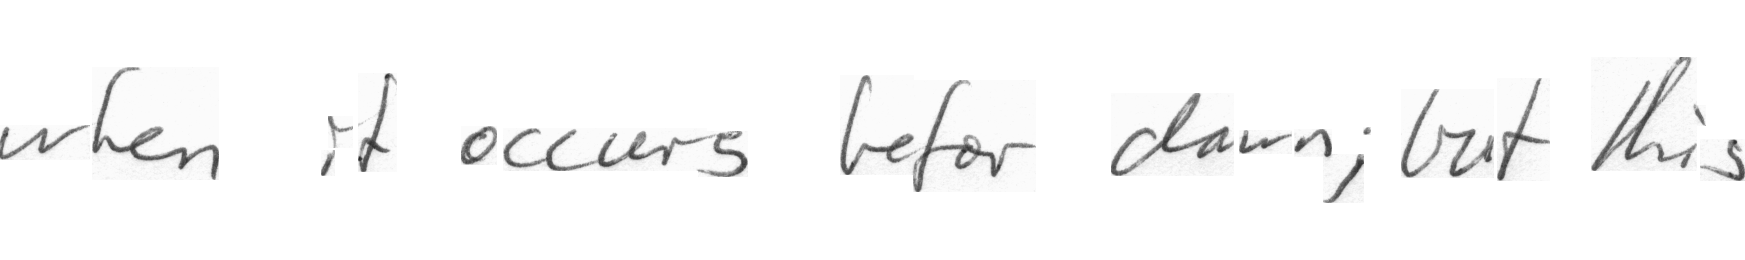 when it occurs befor dawn; but this